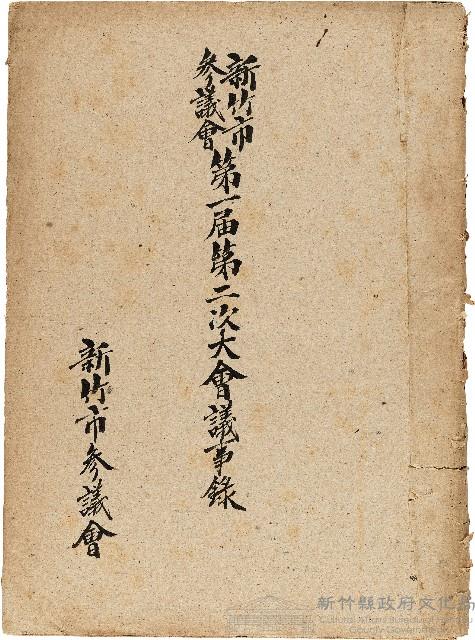 新竹市
參議會
第一屆第二次大會議事錄
新竹市參議會
新竹縣政府文化局